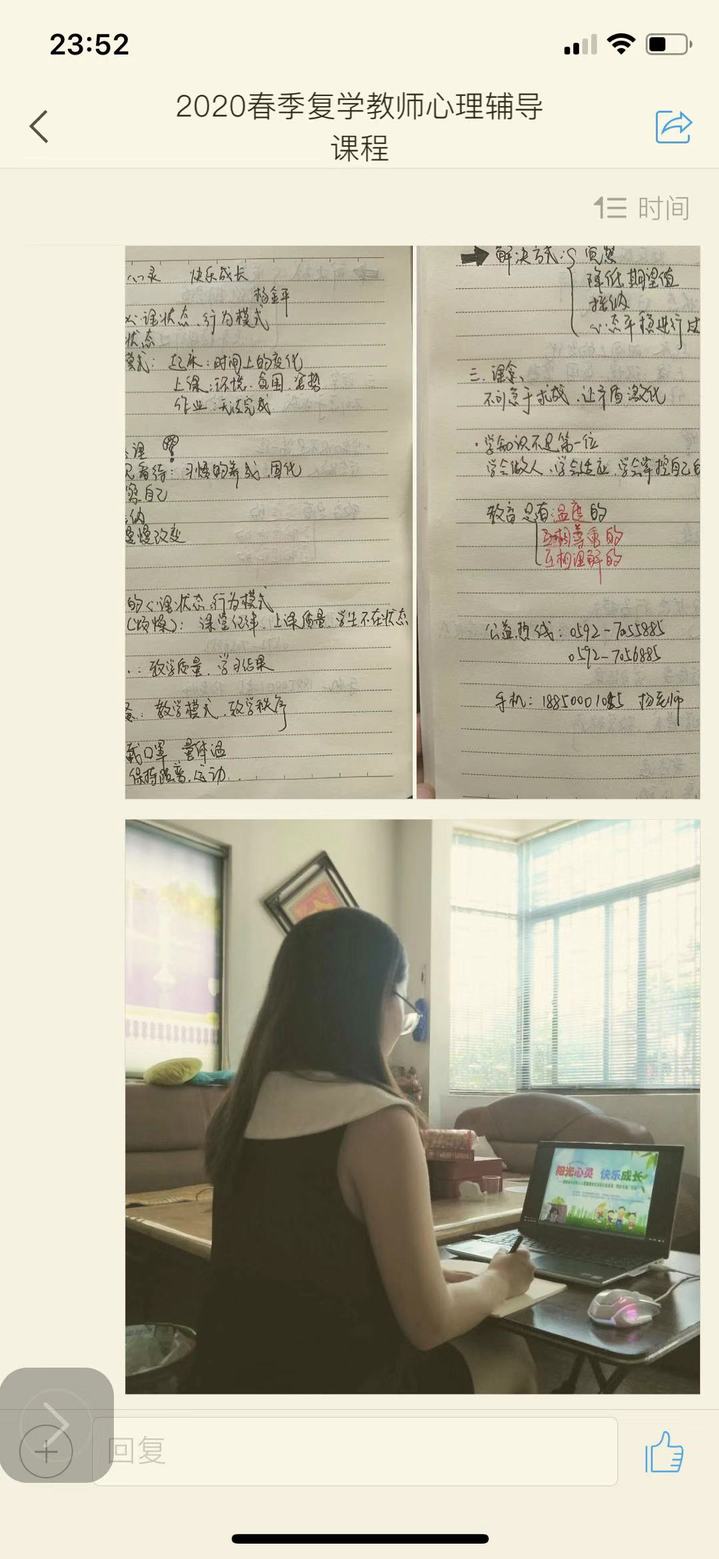 23:52
2020春季复学教师心理辅导
课程
时间
心灵 快乐成长
杨金平
心理状态、行为模式
状态
模式: 起床:时间上的变化
上课:环境、氛围、姿势
作业:无法完成
理
看待:习惯的养成、固化
自己
纳
慢慢改变
的心理状态、行为模式
(烦燥): 课堂纪律、上课质量、学生不在状态
:教学质量、学习结果
: 教学模式、教学秩序
戴口罩 量体温
保持距离、运动
解决方式:
宽恕
降低期望值
接纳
心态平稳进行过
三、理念、
不可急于求成、让矛盾激化
·学知识不是第一位
学会做人、学会适应、学会掌控自己
教育是有温度的
互相尊重的
互相理解的
公益热线:0592-7055885
0592-7056885
手机: 杨老师
阳光心灵 快乐成长
回复